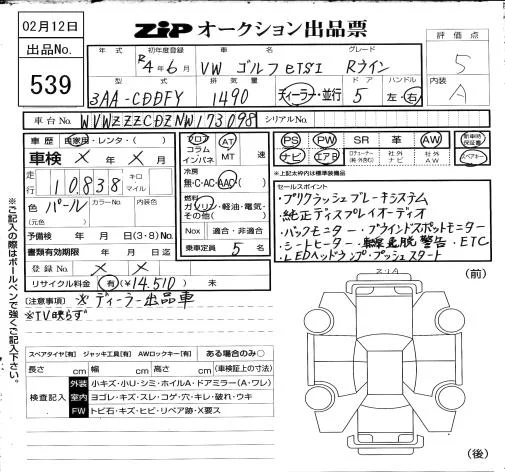 02月12日
ZIP オークション出品票
評価点
5
出品No.
539
年式 初年度登録 車名 グレード
R4年6月 VW ゴルフeTSI Rライン
型式 排気量 ドア ハンドル
3AA-CDDFY 1490 ディーラー・並行 5 左・右
内装
A
車台No. WVWZZZCDZNW173098 シリアルNo.
車歴 自家用・レンタ・( )
車検 × 年 × 月
走行 10,838 キロ マイル
色 パール カラーNo. 内装色
(元色 )
予備検 年 月 日(3・8)No.
書類有効期限 年 月 日迄
登録No. × ×
リサイクル料金 有(¥14,510) 未
フロア コラム インパネ AT MT 速
冷房
無・C・AC・AAC・( )
燃料
ガソリン・軽油・電気・
その他( )
Nox 適合・非適合
乗車定員 5 名
PS PW SR 革 AW 新車時保証書
ナビ エアB 社外ナビ 社外AW スペアキー
※上記太枠内は標準装備品
セールスポイント
・プリクラッシュブレーキシステム
・純正ディスプレイオーディオ
・バックモニター ・ブラインドスポットモニター
・シートヒーター ・車線逸脱警告 ・ETC
・LEDヘッドランプ・プッシュスタート
(注意事項) ※ディーラー出品車
※TV映らず
(前)
スペアタイヤ[有] ジャッキ工具[有] AWロックキー[有] ある場合のみ○
長さ cm 幅 cm 高さ cm (車検証上の寸法)
検査記入
外装 小キズ・小U・シミ・ホイルA・ドアミラー(A・ワレ)
室内 ヨゴレ・キズ・スレ・コゲ・穴・キレ・破れ・ウキ
FW トビ石・キズ・ヒビ・リペア跡・X要ス
(後)
※ご記入の際はボールペンで強くご記入下さい。